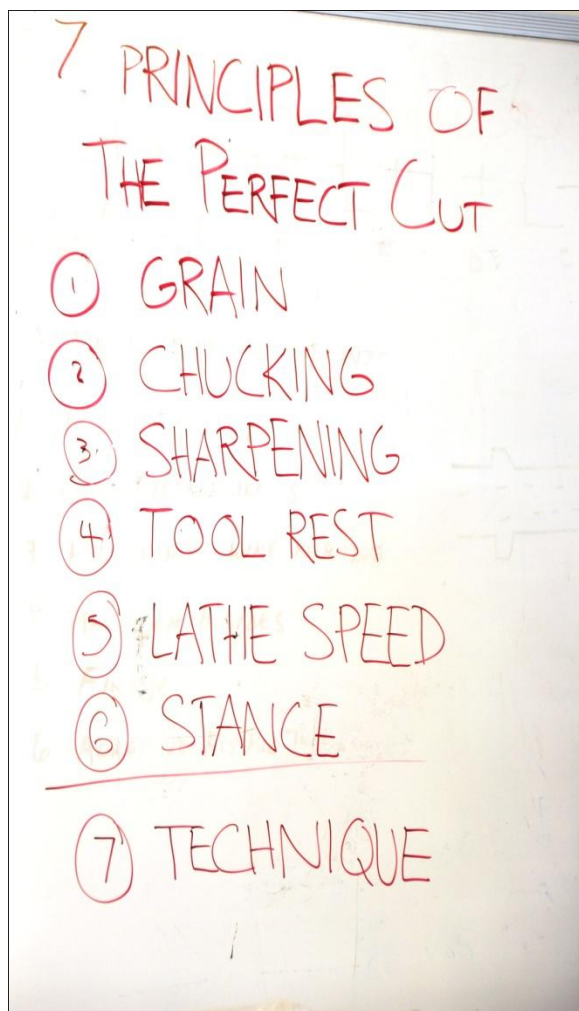 7 PRINCIPLES OF
THE PERFECT CUT
1 GRAIN
2 CHUCKING
3. SHARPENING
4 TOOL REST
5 LATHE SPEED
6 STANCE
7 TECHNIQUE